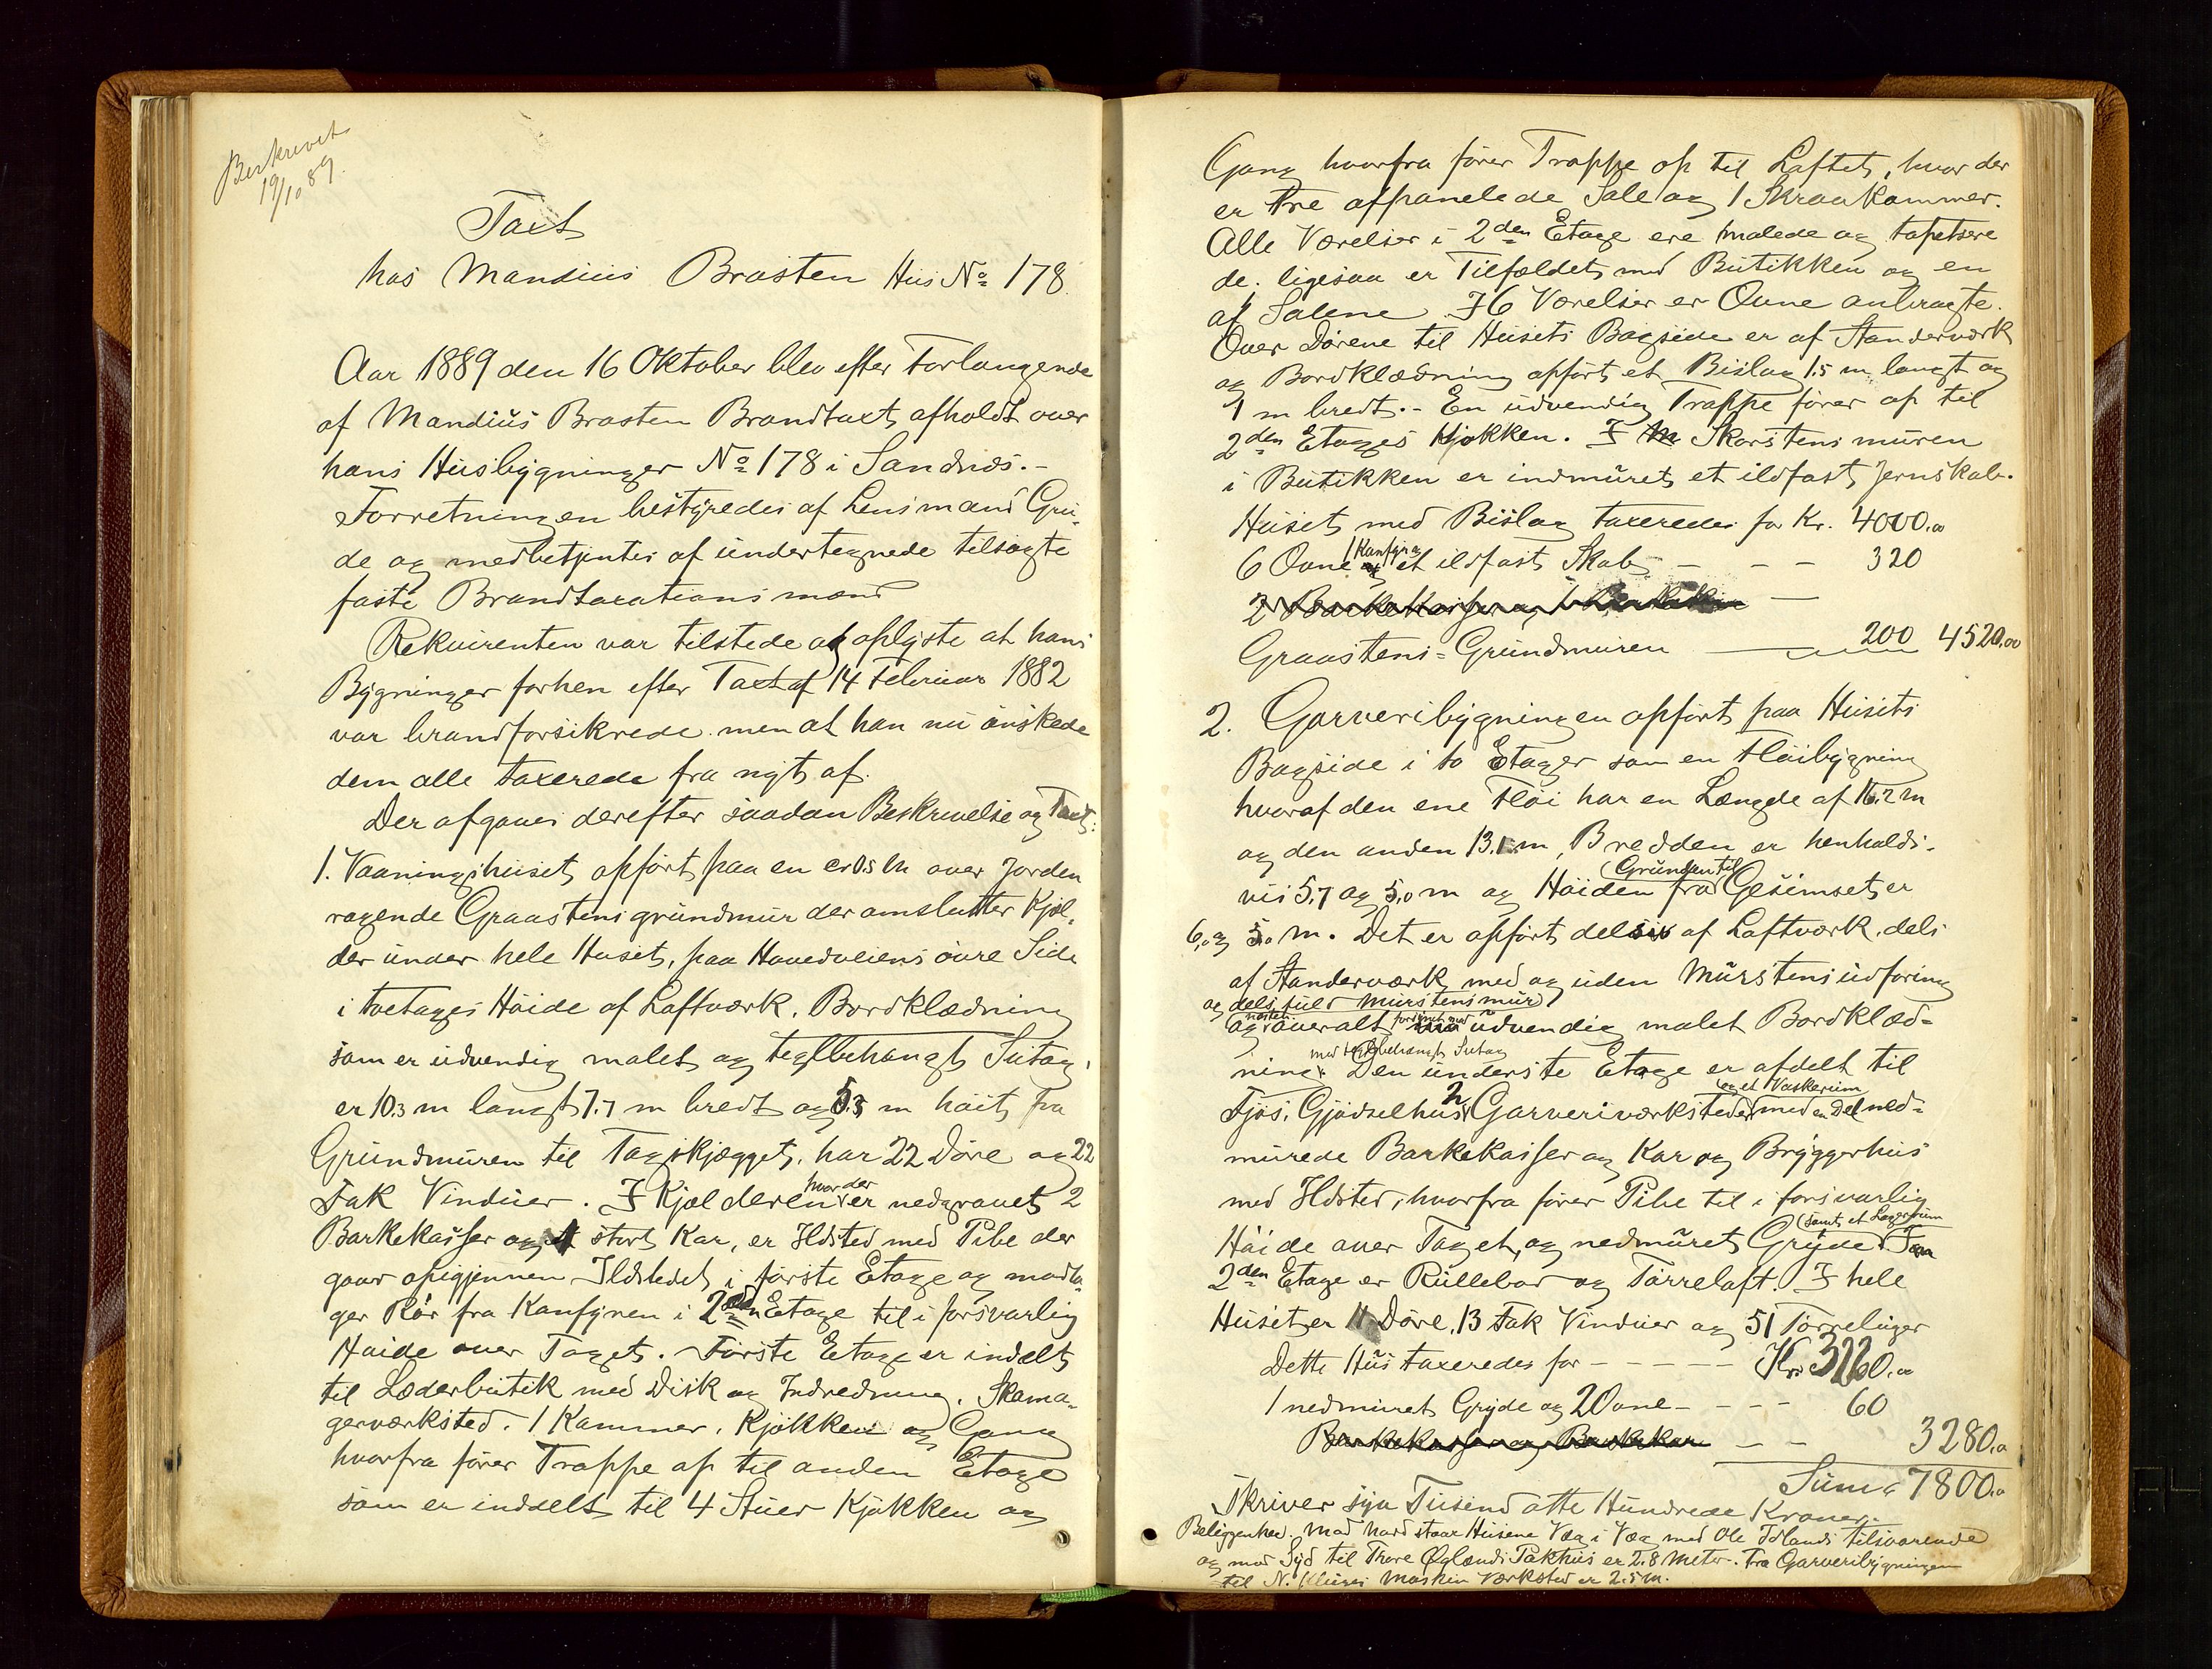 Beskrevet
19/10 89.
Taxt
hos Mandius Brasten Hus No 178
Aar 1889 den 16 Oktober blev efter Forlangende
af Mandius Brasten Brandtaxt afholdt over
hans Husbygninger No 178 i Sandnæs.-
Forretningen bestyredes af Lensmand Gru-
de og medbetjentes af undertegnede tilsagte
faste Brandtaxationsmænd
Rekvirenten var tilstede og oplyste at hans
Bygninger forhen efter Taxt af 14 Februar 1882
var brandforsikrede men at han nu ønskede
dem alle taxerede fra nyt af.
Der afgaves derefter saadan Beskrivelse og Taxt:
1. Vaaningshuset, opført paa en er 0.5 m over Jorden
ragende Graastensgrundmur der omslutter Kjæl-
der under hele Huset, paa Hovedveiens øvre Side
i toetages Høide af Laftværk, Bordklædning
som er udvendig malet og teglbehængt Sutag,
er 10.3 m langt 7.7 m bredt og 5.3 m høit fra
Grundmuren til Tagskjægget, har 22 Døre og 22
Fak Vinduer. I Kjælderen hvor der er nedgravet 2
Barkekasser og 1 stort Kar, er Ildsted med Pibe der
gaar opigjennem Ildstedet i første Etage og modta-
ger Rør fra Komfyren i 2den Etage til i forsvarlig
Høide over Taget. Første Etage er indelt
til Læderbutik med Disk og Indredning, Skoma-
gerværksted, 1 Kammer, Kjøkken og Gang
hvorfra fører Trappe op til anden Etage
som er inddelt til 4 Stuer Kjøkken og
Gang hvorfra fører Trappe op til Loftet, hvor der
er tre afpanelede Sale og 1 Skraakammer.
Alle Værelser i 2den Etage ere malede og tapetsere
de. ligesaa er Tilfældet med Butikken og en
af Salene. I 6 Værelser er Ovne anbragte.
Over Dørene til Husets Bagside er af Standerværk
og Bordklædning opført et Bislag 1.5 m langt og
1 m bredt.- En udvendig Trappe fører op til
2den Etages Kjøkken. I Skorstensmuren
i Butikken er indmuret et ildfast Jernskab.
Huset med Bislag taxeredes for Kr. 4000.00
6 Ovne 1 Komfyr og et ildfast Skab - - - 320
2 Barkekasser og 1 Barkekar -
Graastens-Grundmuren 200 4520.00
2. Garveribygningen opført paa Husets
Bagside i to Etager som en Fløibygning
hvoraf den ene Fløi har en Længde af 16.2 m
og den anden 13.1 m, Bredden er henholds-
vis 5.7 og 5.0 m og Høiden fra Grunden til Gesimset er
6.0 og 5.0 m. Det er opført dels af Laftværk, dels
af Standerværk med og uden Murstensudforing
og dels fuld Murstensmur
og næsten overalt forsynet med udvendig malet Bordklæd-
ning med teglbehængt Sutag. Den underste Etage er afdelt til
Fjøs, Gjødselhus, 2 Garveriværksteder og et Vaskerum med en Del ned-
murede Barkekasser og Kar og Bryggerhus
med Ildsted, hvorfra fører Pibe til i forsvarlig
Høide over Taget, og nedmuret Gryde samt et Lagerrum. Paa
2den Etage er Rullebod og Tørreloft. I hele
Huset er 11 Døre, 13 Fak Vinduer og 51 Tørreluger
Dette Hus taxeredes for - - - - - Kr. 3220.00
1 nedmuret Gryde og 2 Ovne - - - - 60
Barkekasser og Barkekar - - 3280.00
Suma 7800.00
Skriver syv Tusend otte Hundrede Kroner.
Beliggenhed. Mod Nord staar Husene Væg i Væg med Ole Idlands tilsvarende
og mod Syd til Thore Øglænds Pakhus er 2.8 Meter. Fra Garveribygningen
til N. Maskin Værksted er 2.5 m.